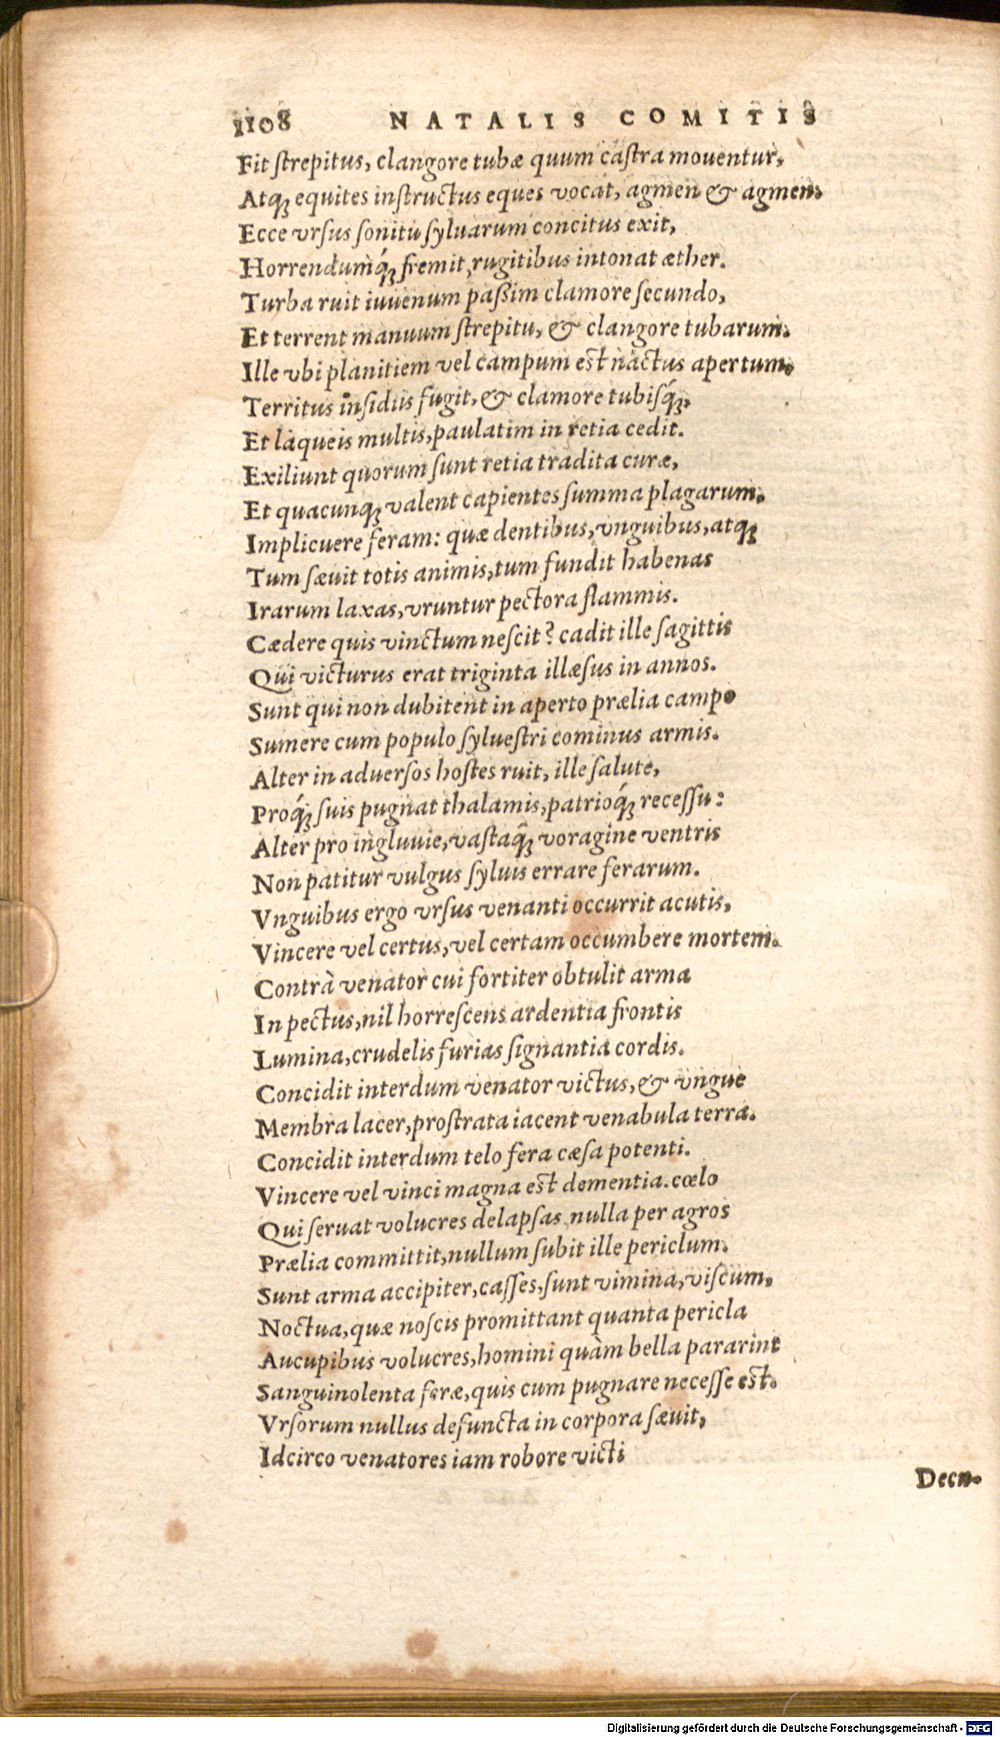 1108 NATALIS COMITIS
Fit ſtrepitus, clangore tubæ quum caſtra mouentur,
Atq; equites inſtructus eques vocat, agmen & agmen.
Ecce vrſus ſonitu ſyluarum concitus exit,
Horrendumq́; fremit, rugitibus intonat æther.
Turba ruit iuuenum paßim clamore ſecundo,
Et terrent manuum ſtrepitu, & clangore tubarum.
Ille vbi planitiem vel campum eſt nactus apertum,
Territus inſidiis fugit, & clamore tubiſq́;,
Et laqueis multis, paulatim in retia cedit.
Exiliunt quorum ſunt retia tradita curæ,
Et quacunq; valent capientes ſumma plagarum,
Implicuere feram: quæ dentibus, vnguibus, atq;
Tum ſæuit totis animis, tum fundit habenas
Irarum laxas, vruntur pectora flammis.
Cædere quis vinctum neſcit? cadit ille ſagittis
Qui victurus erat triginta illæſus in annos.
Sunt qui non dubitent in aperto prælia campo
Sumere cum populo ſylueſtri cominus armis.
Alter in aduerſos hoſtes ruit, ille ſalute,
Proq́; ſuis pugnat thalamis, patrioq́; receſſu:
Alter pro ingluuie, vaſtaq̂; voragine ventris
Non patitur vulgus ſyluis errare ferarum.
Vnguibus ergo vrſus venanti occurrit acutis,
Vincere vel certus, vel certam occumbere mortem.
Contrà venator cui fortiter obtulit arma
In pectus, nil horreſcens ardentia frontis
Lumina, crudelis furias ſignantia cordis.
Concidit interdum venator victus, & vngue
Membra lacer, proſtrata iacent venabula terra.
Concidit interdum telo fera cæſa potenti.
Vincere vel vinci magna eſt dementia. cœlo
Qui ſeruat volucres delapſas nulla per agros
Prælia committit, nullum ſubit ille periclum.
Sunt arma accipiter, caſſes, ſunt vimina, viſcum,
Noctua, quæ noſcis promittant quanta pericla
Aucupibus volucres, homini quàm bella pararint
Sanguinolenta feræ, quis cum pugnare neceſſe eſt.
Vrſorum nullus defuncta in corpora ſæuit,
Idcirco venatores iam robore victi
Decu-
Digitalisierung gefördert durch die Deutsche Forschungsgemeinschaft - DFG